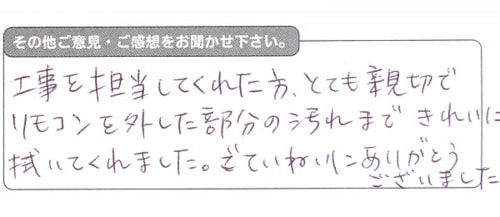 その他ご意見・ご感想をお聞かせ下さい。
工事を担当してくれた方、とても親切で
リモコンを外した部分の汚れまできれいに
拭いてくれました。ごていねいにありがとう
ございました